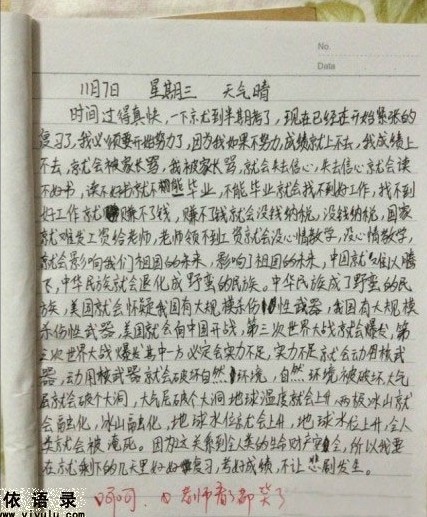 No.
Date
11月7日 星期三 天气晴
时间过得真快，一下就到半期考了，现在已经在开始紧张的
复习了，我必须要开始努力了，因为我如果不努力，成绩就上不去，我成绩上
不去，就会被家长骂，我被家长骂，就会失去信心，失去信心就会读
不好书，读不好书就不能毕业，不能毕业就会找不到好工作，找不到
好工作就赚不了钱，赚不了钱就会没钱纳税，没钱纳税，国家
就难发工资给老师，老师领不到工资就会没心情教学，没心情教学，
就会影响我们祖国的未来，影响了祖国的未来，中国就难以腾
飞，中华民族就会退化成野蛮的民族。中华民族成了野蛮的民
族，美国就会怀疑我国有大规模杀伤性武器，我国有大规模
杀伤性武器，美国就会向中国开战，第三次世界大战就会爆发，第
三次世界大战爆发其中一方必定会实力不足，实力不足就会动用核武
器，动用核武器就会破坏自然环境，自然环境被破坏大气
层就会破个大洞，大气层破个大洞地球温度就会上升，两极冰山就
会融化，冰山融化，地球水位就会上升，地球水位上升，全人
类就会被淹死。因为这关系到全人类的生命财产安全，所以我要
在就剩下的几天里好好复习，考好成绩，不让悲剧发生。
呵呵. 老师看了都笑了
依语录
www.yiyulu.com